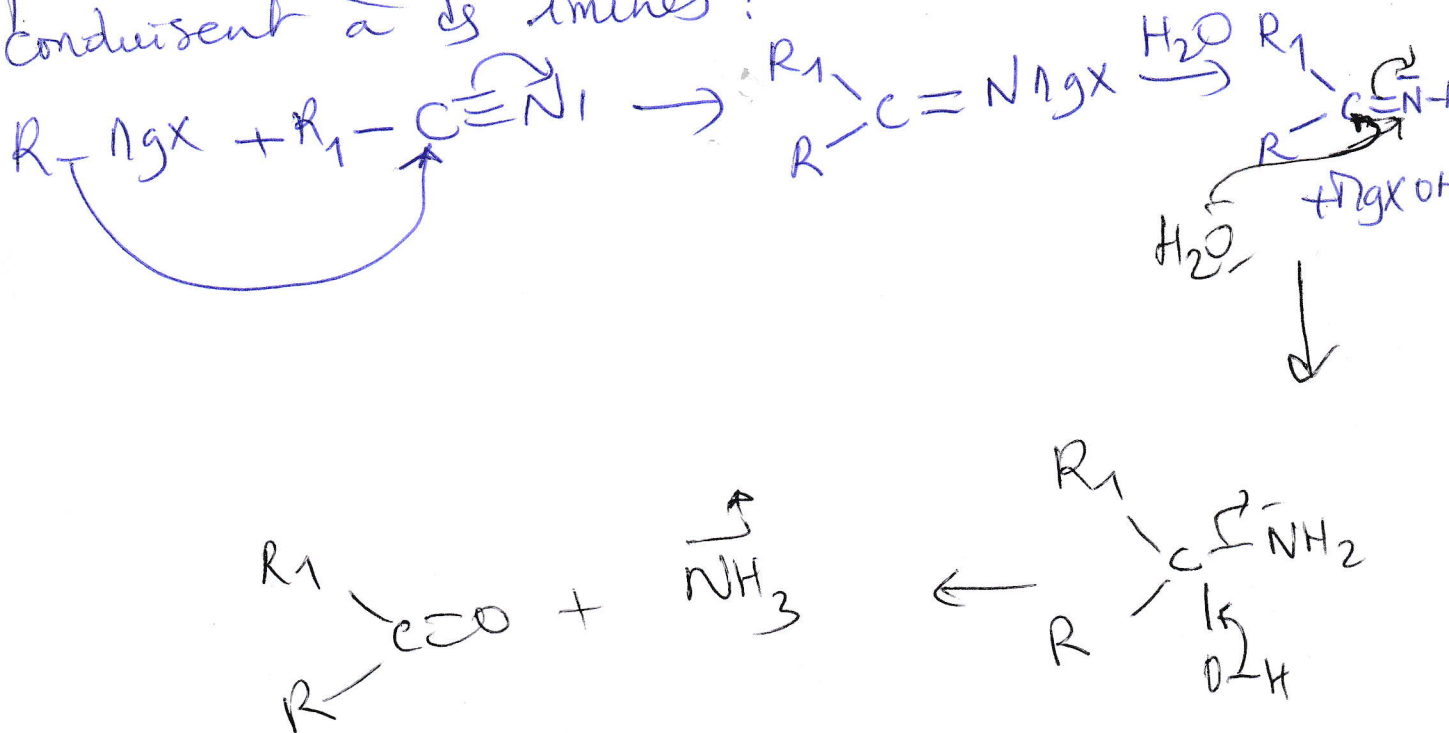 conduisent à ds imines :
R - MgX + R1 - C≡N| → R1 R C = NMgX H2O → R1 R C=N-H
+ MgXOH
H2O
R1 R C - NH2 O-H
R1 R C=O + NH3 ←